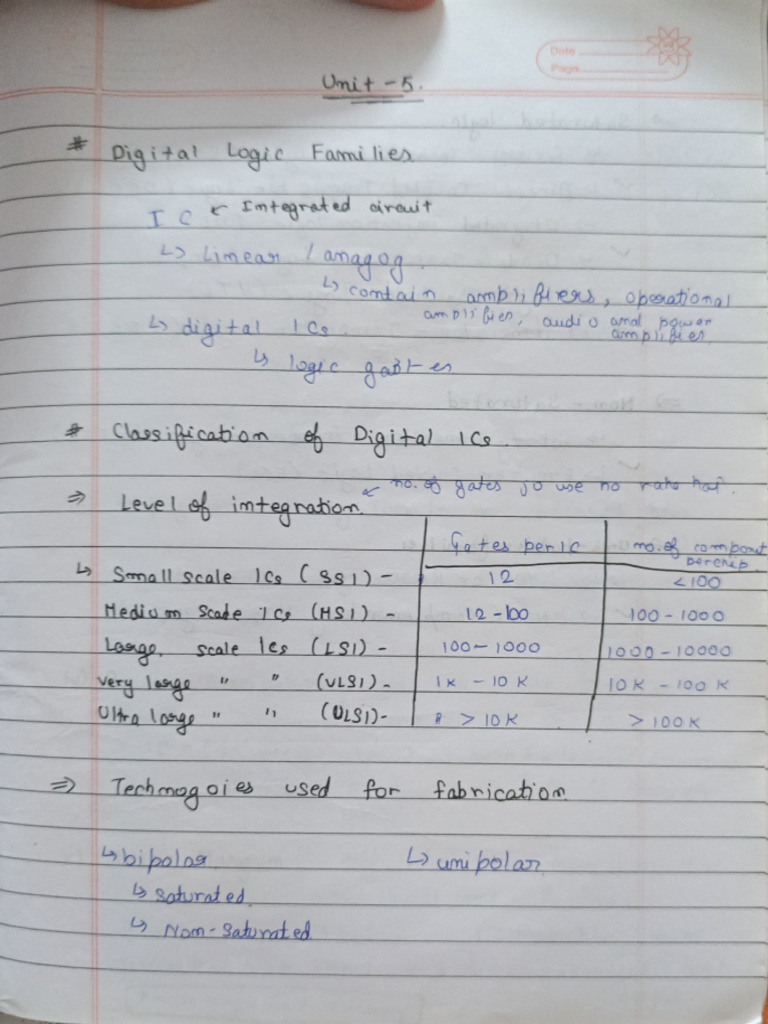 Date
Page
Unit - 5.
# Digital Logic Families
IC ← Integrated circuit
↳ linear / anagog.
↳ contain amplifiers, operational
amplifier, audio and power
amplifier
↳ digital ICs
↳ logic gates
# Classification of Digital ICs
⇒ Level of integration ← no. of gates jo use ho rahe hai.
Gates per IC no. of compont
perchip
↳ Small scale ICs (SSI) - 12 <100
Medium Scale ICs (MSI) - 12-100 100-1000
Large scale ICs (LSI) - 100-1000 1000-10000
very large " " (VLSI) - 1K - 10K 10K - 100K
Ultra large " " (ULSI) - > 10K > 100K
⇒ Technogoies used for fabrication
↳ bipolar ↳ unipolar
↳ saturated
↳ Non-saturated